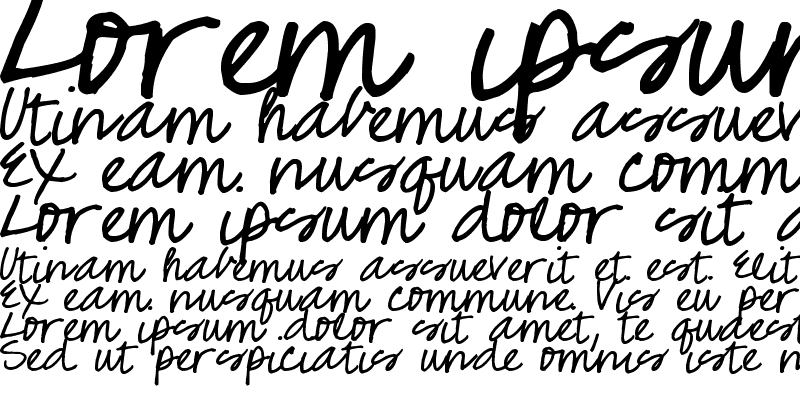 Lorem ipsum
Utinam habemus assuever
Ex eam. nusquam comm
Lorem ipsum dolor sit a
Utinam habemus assueverit et. est. Elit
Ex eam. nusquam commune. Vis eu per
Lorem ipsum dolor sit amet, te quaest
Sed ut perspiciatis unde omnis iste n